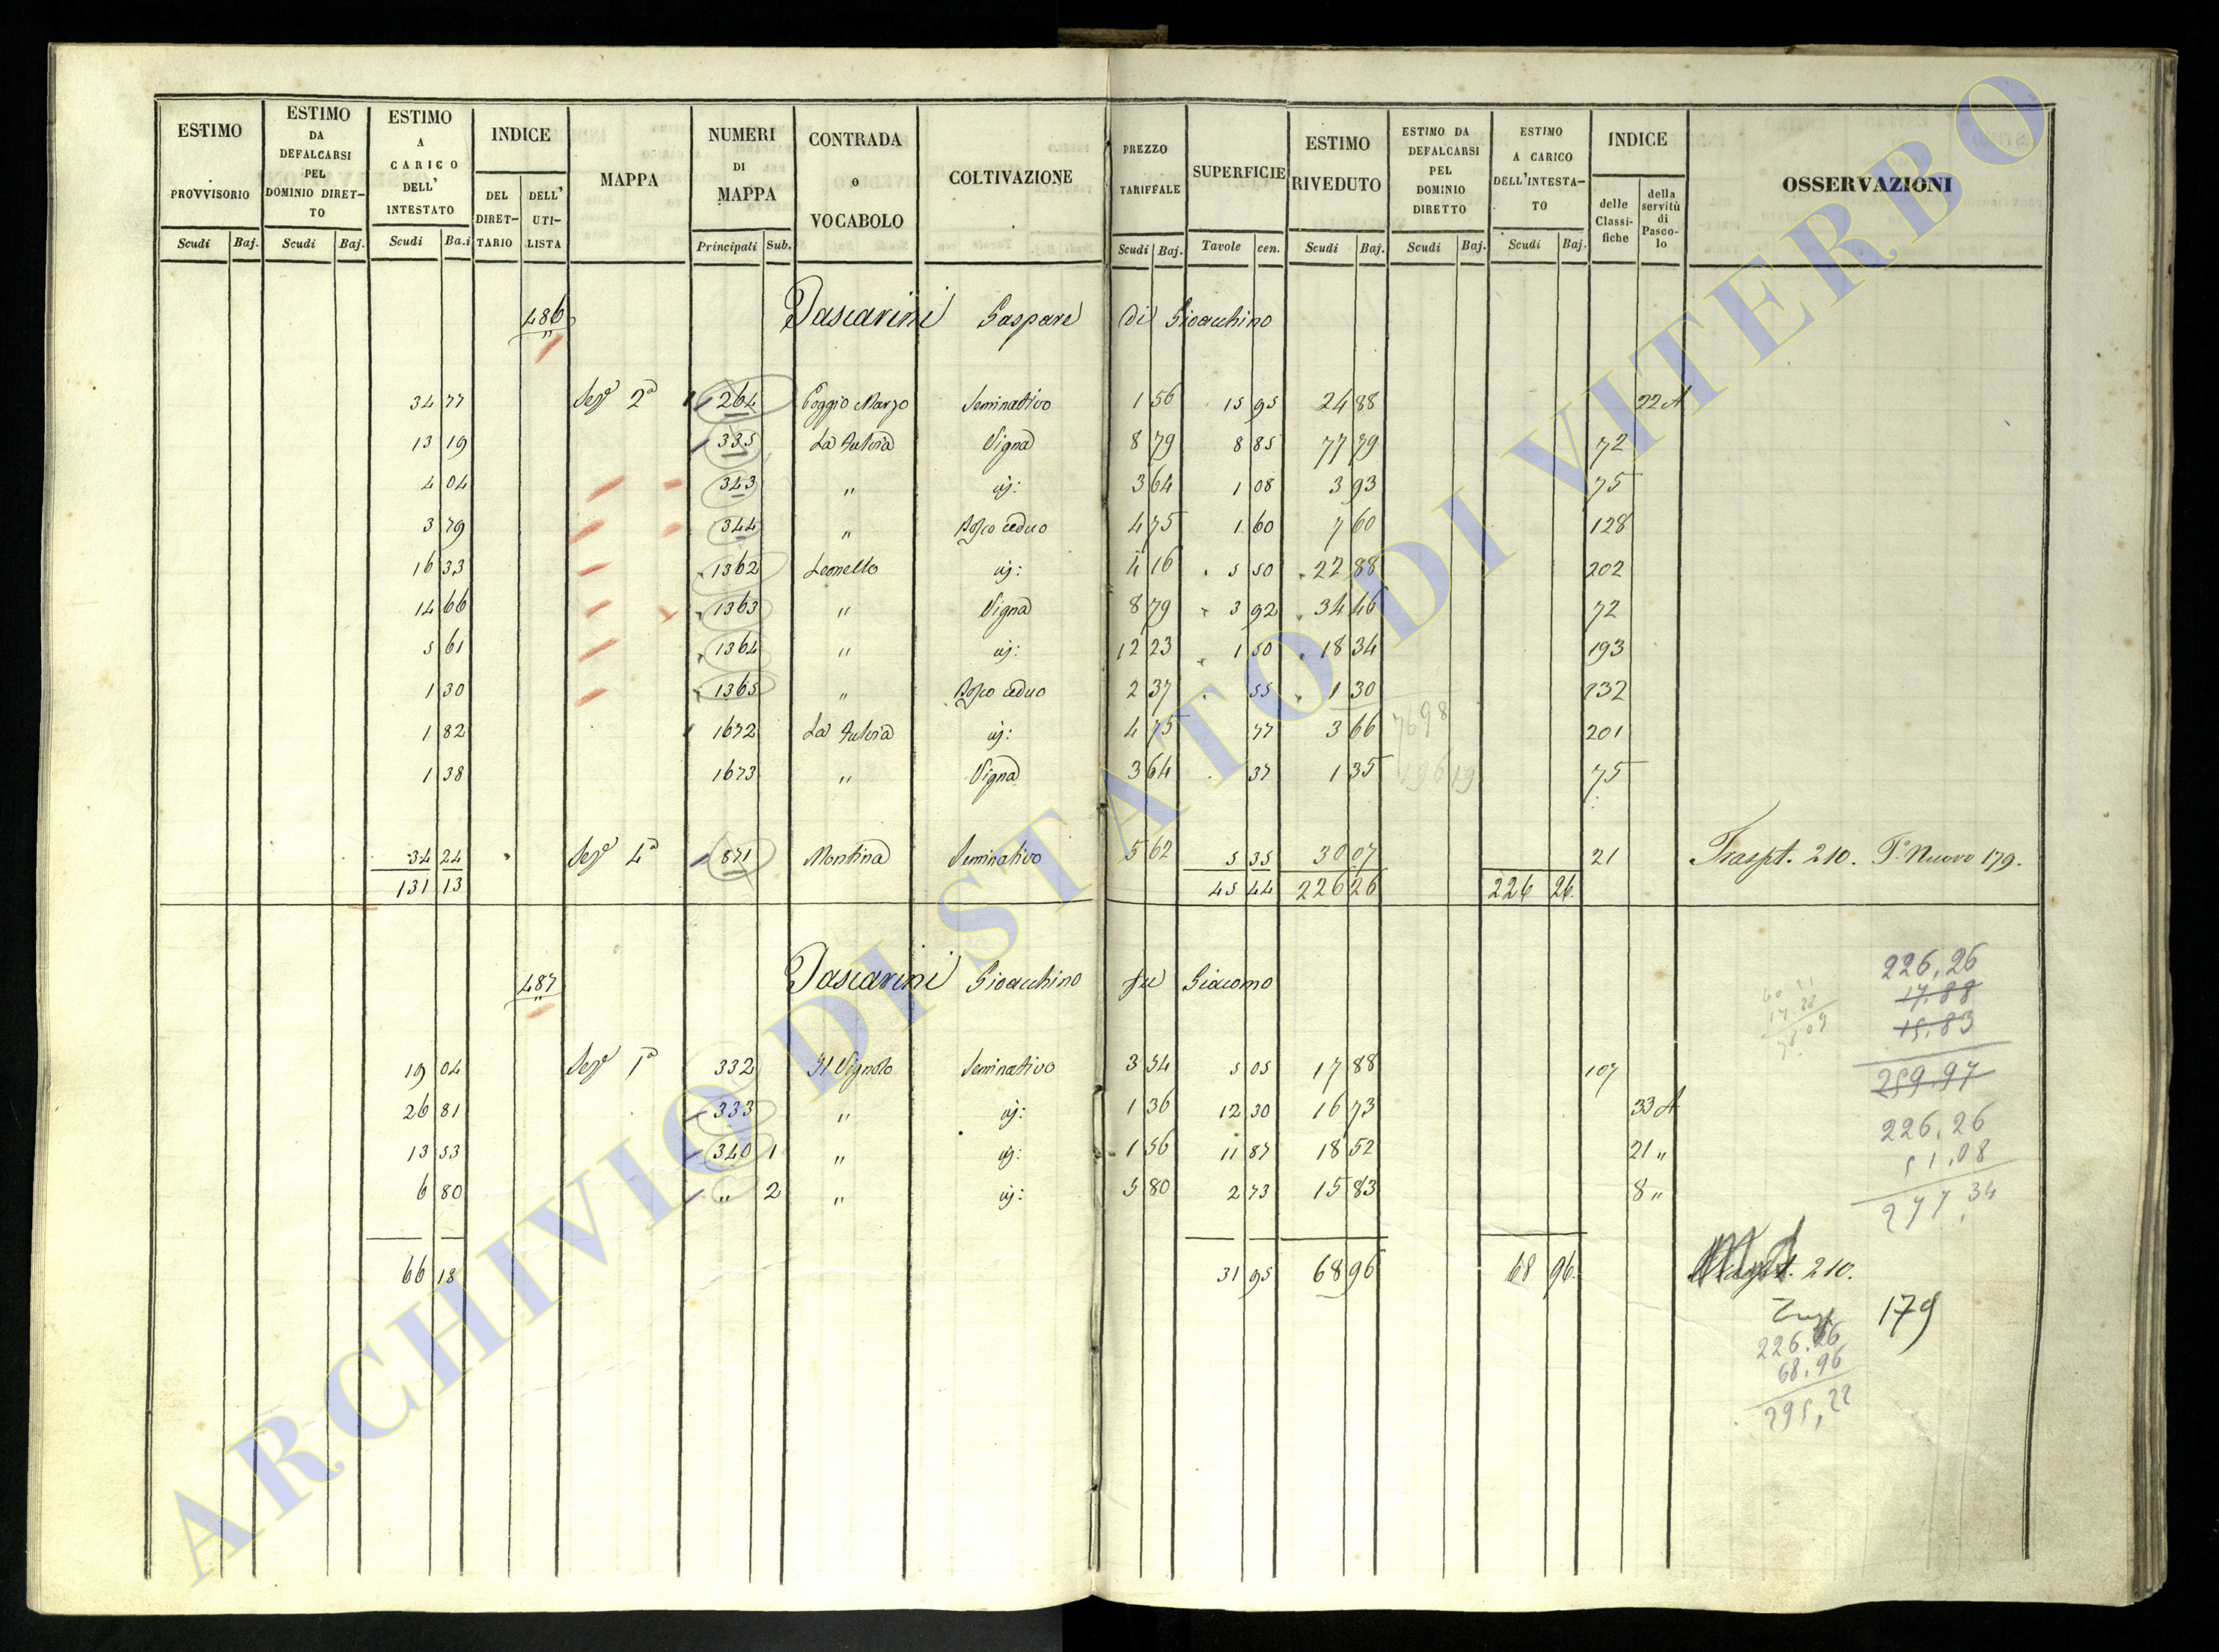 ESTIMO PROVVISORIO Scudi Baj.
ESTIMO DA DEFALCARSI PEL DOMINIO DIRETTO Scudi Baj.
ESTIMO A CARICO DELL' INTESTATO Scudi Ba.i
INDICE DEL DIRET-TARIO DELL' UTI-LISTA
MAPPA
NUMERI DI MAPPA Principali Sub.
CONTRADA o VOCABOLO
COLTIVAZIONE
PREZZO TARIFFALE Scudi Baj.
SUPERFICIE Tavole cen.
ESTIMO RIVEDUTO Scudi Baj.
ESTIMO DA DEFALCARSI PEL DOMINIO DIRETTO Scudi Baj.
ESTIMO A CARICO DELL'INTESTA-TO Scudi Baj.
INDICE delle Classi-fiche della servitù di Pasco-lo
OSSERVAZIONI
486 Pascarini Gaspare di Gioacchino
34 77 Sez.e 2a 264 Poggio Marzo Seminativo 1 56 15 95 24 88 22 A
13 19 335 Vigna 8 79 8 85 77 79 72
4 04 343 " id: 3 64 1 08 3 93 75
3 79 344 " Bosco ceduo 4 75 1 60 7 60 128
16 33 1362 Leonello id: 4 16 5 50 22 88 202
14 66 1363 " Vigna 8 79 3 92 34 46 72
5 61 1364 " id: 12 23 1 50 18 34 193
1 30 1365 " Bosco ceduo 2 37 55 1 30 132
1 82 1672 id: 4 75 77 3 66 201
7698
1 38 1673 " Vigna 3 64 37 1 35 75
196 19
34 24 Sez.e 4a 871 Montina Seminativo 5 62 5 35 30 07 21 Traspt. 210. P. Nuovo 179.
131 13 45 44 226 26 226 26
487 Pascarini Gioacchino fu Giacomo
226,26
17,88
15,83
259,97
19 04 Sez.e 1a 332 Il Vignolo Seminativo 3 54 5 05 17 88 107
26 81 333 " id: 1 36 12 30 16 73 33 A
13 53 340 1 " id: 1 56 11 87 18 52 21 "
6 80 " 2 " id: 5 80 2 73 15 83 8 "
226,26
51,08
277,34
66 18 31 95 68 96 68 96 Traspt. 210.
179
226,26
68,96
295,22
ARCHIVIO DI STATO DI VITERBO